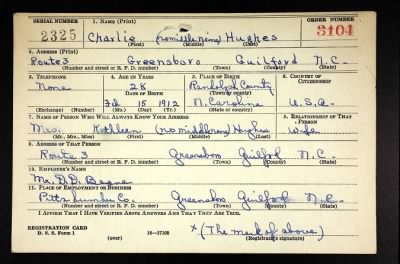 SERIAL NUMBER 1. NAME (Print) ORDER NUMBER
2325 Charlie (no middle name) Hughes 3104
(First) (Middle) (Last)
2. ADDRESS (Print)
Route 3 Greensboro Guilford N.C.
(Number and street or R. F. D. number) (Town) (County) (State)
3. TELEPHONE 4. AGE IN YEARS 5. PLACE OF BIRTH 6. COUNTRY OF CITIZENSHIP
None 28 Randolph County
DATE OF BIRTH (Town or county)
Feb 15 1912 N. Carolina U.S.A.
(Exchange) (Number) (Mo.) (Day) (Yr.) (State or country)
7. NAME OF PERSON WHO WILL ALWAYS KNOW YOUR ADDRESS 8. RELATIONSHIP OF THAT PERSON
Mrs. Kathleen (no middle name) Hughes wife
(Mr., Mrs., Miss) (First) (Middle) (Last)
9. ADDRESS OF THAT PERSON
Route 3 Greensboro Guilford N.C.
(Number and street or R. F. D. number) (Town) (County) (State)
10. EMPLOYER'S NAME
Mr. D.D.
11. PLACE OF EMPLOYMENT OR BUSINESS
Pitts Lumber Co. Greensboro Guilford N.C.
(Number and street or R. F. D. number) (Town) (County) (State)
I AFFIRM THAT I HAVE VERIFIED ABOVE ANSWERS AND THAT THEY ARE TRUE.
REGISTRATION CARD
D. S. S. Form 1 (over) 16—17105 x (The mark of above)
(Registrant's signature)